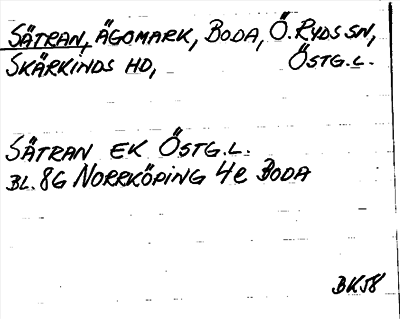 SÄTRAN, ÄGOMARK, BODA, Ö. RYDS SN,
SKÄRKINDS HD, ÖSTG.L.
SÄTRAN EK ÖSTG.L.
BL. 8G NORRKÖPING 4e BODA
BK58